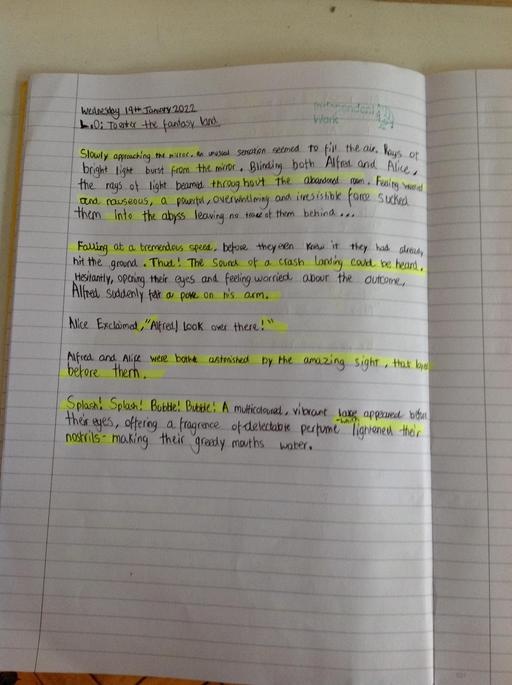 Wednesday 19th January 2022
L.O: To enter the fantasy land.
Independent
Work
Slowly approaching the mirror, an unusual sensation seemed to fill the air. Rays of
bright light burst from the mirror. Blinding both Alfred and Alice,
the rays of light beamed throughout the abandoned room. Feeling
and nauseous, a powerful, overwhelming and irresistible force sucked
them into the abyss leaving no trace of them behind...
Falling at a tremendous speed, before they even knew it they had already
hit the ground. Thud! The sound of a crash landing could be heard.
Hesitantly, opening their eyes and feeling worried about the outcome,
Alfred suddenly felt a poke on his arm.
Alice Exclaimed, "Alfred! Look over there!"
Alfred and Alice were bothe astonished by the amazing sight, that layed
before them.
Splash! Splash! Bubble! Bubble! A multicoloured, vibrant lake appeared before
their eyes, offering a fragrence of delectable perfume which lightened their
nostrils- making their greedy mouths water.